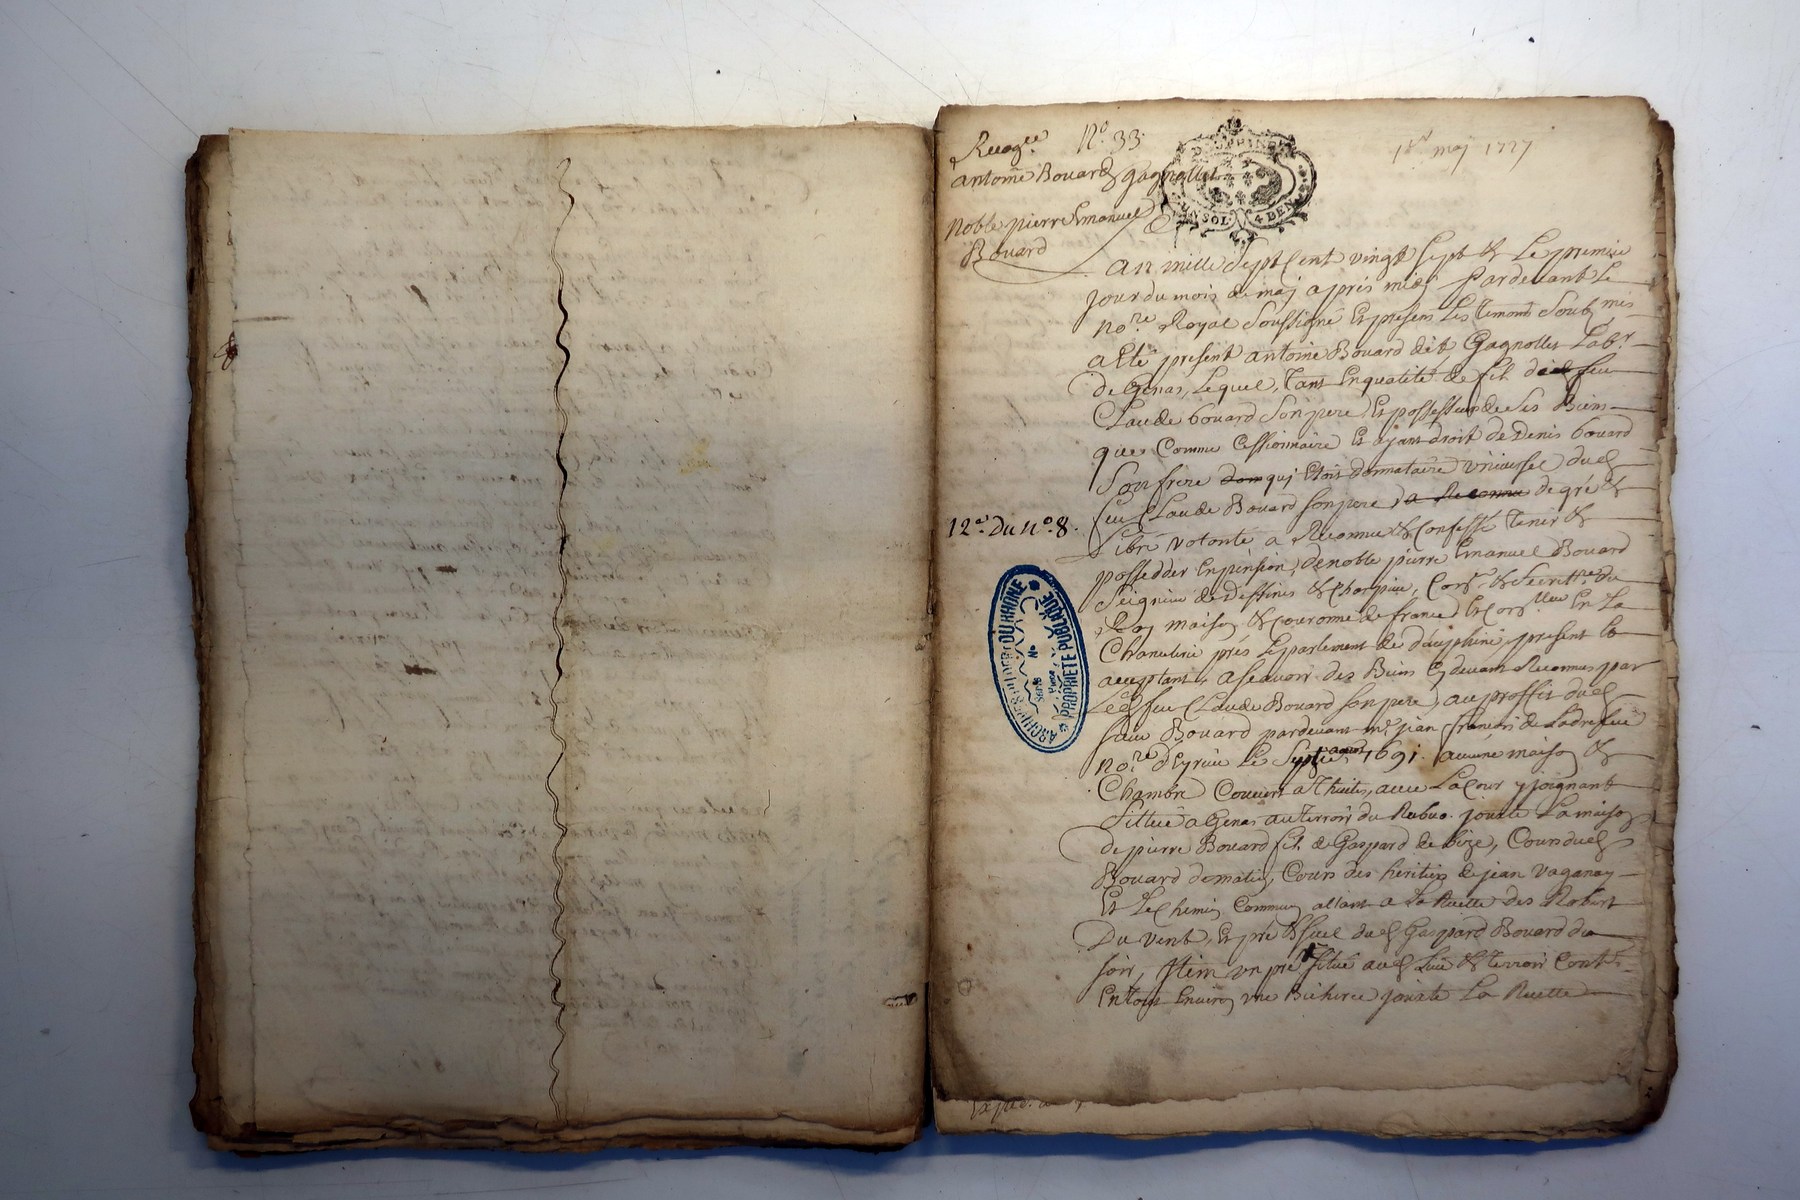 Recog.ce N.o 33.
antoine Bouard Gagnollet
Noble pierre Emanuel
Bouard
DAUPHINE
UN SOL 4 DEN
1er may 1727
L'an mille Sept Cent vingt Sept & Le premier
jour du mois de maj apres midj pardevant Le
no.re Royal Soussigné Et presens Les temoins Soub mis
a Eté present antoine Bouard dit Gagnollet Lab.r
de Genas, Lequel, tant En qualité de fils dud feu
Claude bouard Son pere Et possesseur de Ses Biens
que Comme Cessionnaire Et ajant droit de Denis bouard
Son frere qui Etoit donnataire Universel dud
feu Claude Bouard Son pere, a Reconnu de gré &
Libre volonté a Reconnu & Confessé tenir &
possedder En pension, de noble pierre Emanuel Bouard
Seigneur de Dessines & Charpieu, Con.er & Secret.re du
Roy maison & Couronne de france Et Con.ller En La
Chancelerie prés Le parlement de dauphiné present Et
acceptant, a Scavoir des Biens Cy devant Reconnus par
Led feu Claude Bouard Son pere, au proffit dud
Sieur Bouard pardevant m.e jean francois de Ladreseue
No.re d'Eyrieu Le Sept aoust 1691. au une maison &
Chambre Couvert a Thuiles, avec La Cour y joignant
Sittuée a Genas au terroir du Rubuo. jouxte La maison
de pierre Bouard fils de Gaspard de bize, Cour dud
Bouard de matin, Cours des heritiers de jean vaganay
Et Le Chemin Commun allant a La Ruette des Robert
Du vent, Et pré & Suel dud Gaspard Bouard du
soir, Item un pré Situé aud Lieu & terroir Cont.t
En tout Environ une Bicherée jouxte La Ruette
12.e Du N.o 8.
ARCHIVES DU DEP.T DU RHÔNE
PROPRIÉTÉ PUBLIQUE
No
Série
Pièce